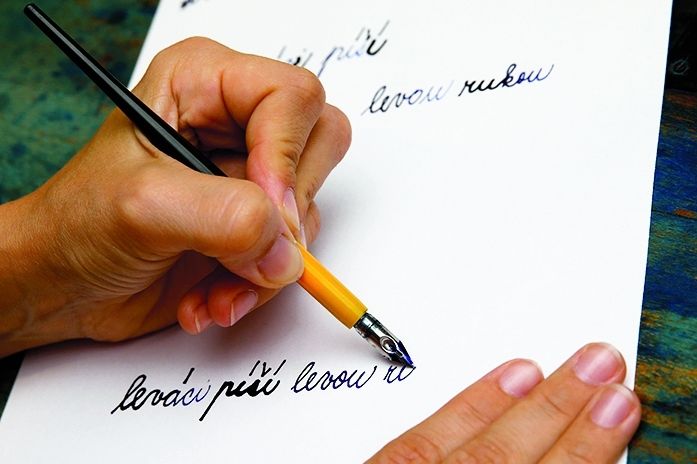 píší
levou rukou
leváci píší levou ru